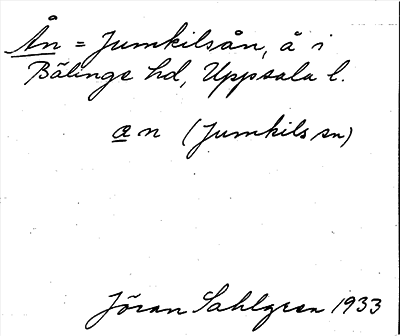 Ån = Jumkilsån, å i
Bälinge hd, Uppsala l.
a n (Jumkils sn)
Jöran Sahlgren 1933